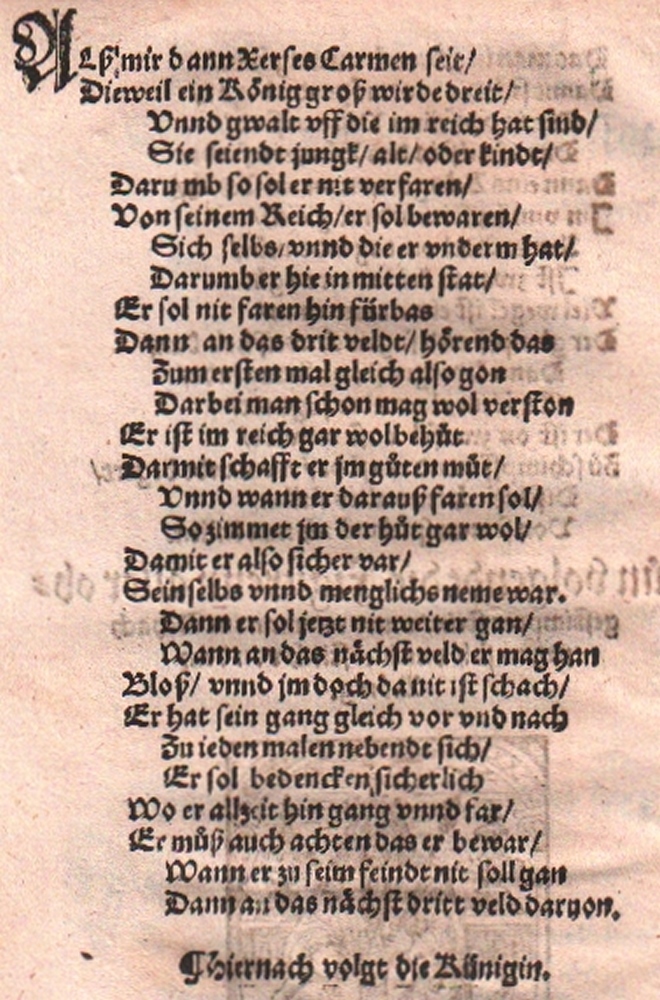 ALß mir dann Xerses Carmen seit/
Dieweil ein Kőnig groß wirde dreit/
Vnnd gwalt vff die im reich hat sind/
Sie seiendt jungk/ alt/ oder kindt/
Darumb so sol er nit verfaren/
Von seinem Reich/ er sol bewaren/
Sich selbs/ vnnd die er vnderm hat/
Darumb er hie in mitten stat/
Er sol nit faren hin fürbas
Dann an das drit veldt/ hőrend das
Zum ersten mal gleich also gon
Darbei man schon mag wol verston
Er ist im reich gar wol behůt
Darmit schafft er jm gůten můt/
Vnnd wann er darauß faren sol/
So zimmet jm der hůt gar wol/
Damit er also sicher var/
Sein selbs vnnd menglichs neme war.
Dann er sol jetzt nit weiter gan/
Wann an das nåchst veld er mag han
Bloß/ vnnd jm doch da nit ist schach/
Er hat sein gang gleich vor vnd nach
Zu ieden malen nebendt sich/
Er sol bedencken sicherlich
Wo er allzeit hin gang vnnd far/
Er můß auch achten das er bewar/
Wann er zu seim feindt nit soll gan
Dann an das nåchst dritt veld daruon.
Hiernach volgt die Künigin.